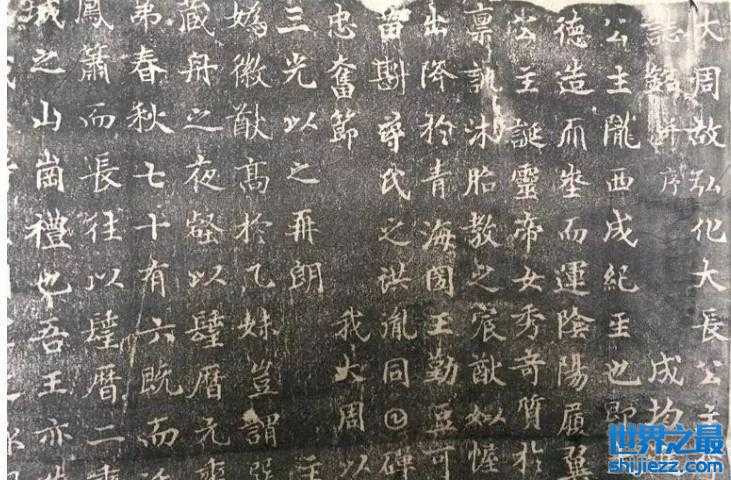 大周故弘化大長公主
誌銘并序 成均
公主隴西成紀𤯔也即
德造𠀑埊而運陰陽履翼
公主誕靈帝女秀奇質於
稟訓沐胎教之宸猷姒幄
出降於青海國王勤豆可
苗斟尋氏之洪胤同𡆠磾
忠奮節 我大周以
三光以之再朗 主
媯徽猷高於乙妹豈謂巽
藏舟之夜壑以𨲢曆元
第春秋七十有六既而
鳳簫而長往以𨲢曆二
城之山崗禮也吾王亦先
世界之最
shijiezz.com